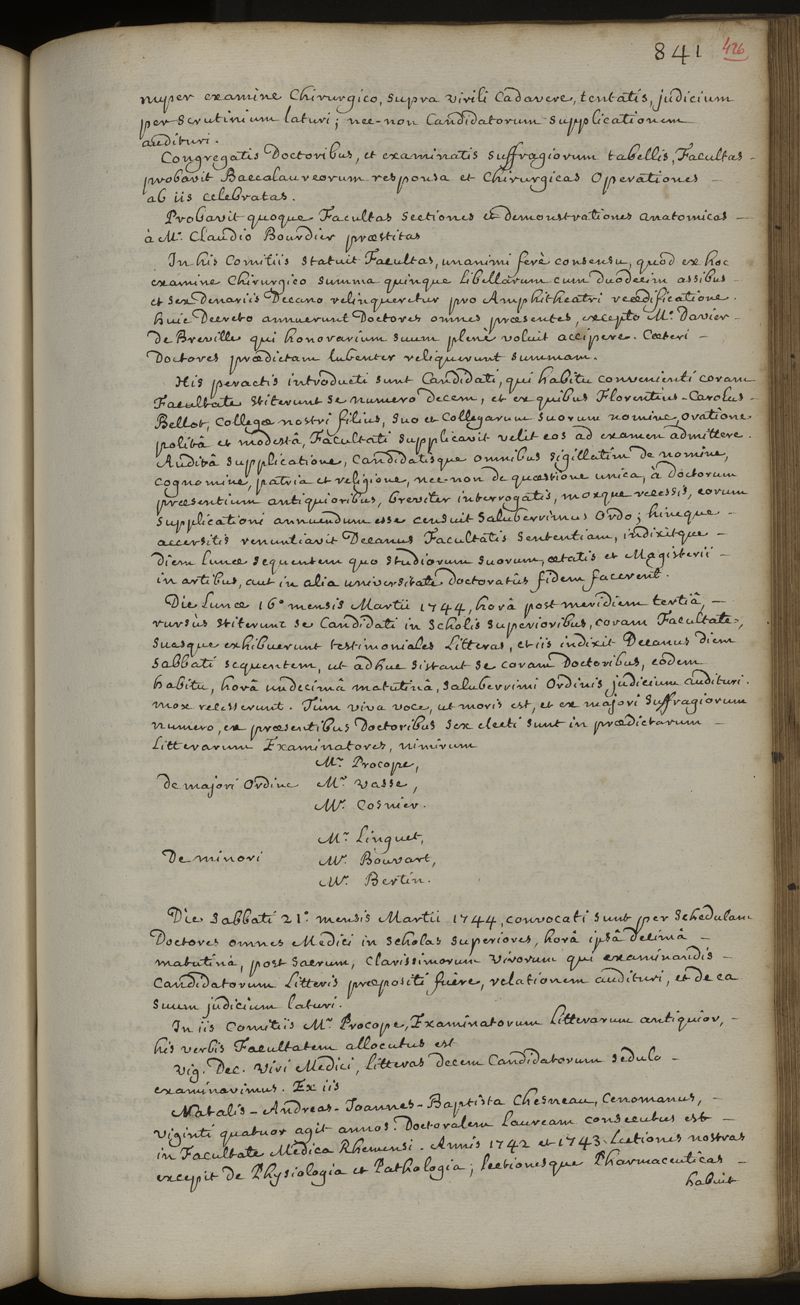 841 426
nuper examine Chirurgico, supra virili Cadavere, tentatis, judicium
per Scrutinium laturi; nec-non Candidatorum supplicationem
audituri.
Congregatis Doctoribus, et examinatis suffragiorum tabellis, Facultas -
probavit Baccalaureorum responsa et Chirurgicas Operationes -
ab iis celebratas.
Probavit quoque Facultas Sectiones et demonstrationes anatomicas -
à Mro Claudio Bourdier præstitas
In his Comitiis statuit Facultas, unanimi ferè consensu, quod ex hoc
examine Chirurgico summa quinque libellarum cum duodecim assibus -
et sex denariis Decano relinqueretur pro Amphitheatri reædificatione.
huic Decreto annuerunt Doctores omnes præsentes, excepto Mro Davier -
De Breville qui honorarium suum plenè voluit accipere. Cæteri -
Doctores prædictam lubenter reliquerunt summam.
His peractis introducti sunt Candidati, qui habitu convenienti coram
Facultate stiterunt se numero decem, et ex quibus Florentius-Carolus -
Bellot, Collegæ nostri filius, suo et Collegarum suorum nomine, oratione
politâ et modestâ, Facultati supplicavit velit eos ad examen admittere.
Auditâ supplicatione, Candidatisque omnibus sigillatim de nomine,
cognomine, patria et religione, nec-non de quæstione unica, à Doctorum
præsentium antiquioribus, breviter interrogatis, moxque recessis, eorum
supplicationi annuendum esse censuit Saluberrimus Ordo; hincque -
accersitis renuntiavit Decanus Facultatis sententiam, indixitque -
diem lunæ sequentem quo studiorum suorum, ætatis et Magisterii -
in artibus, aut in alia universitate doctoratûs fidem facerent.
Die Lunæ 16° mensis Martii 1744, horâ post meridiem tertiâ, -
rursùs stiterunt se Candidati in Scholis superioribus, coram Facultate,
suasque exhibuerunt testimoniales Litteras, et iis indixit Decanus diem
sabbati sequentem, ut adhuc sistant se coram Doctoribus, eodem
habitu, horâ undecimâ matutinâ, saluberrimi Ordinis judicium audituri.
mox recesserunt. Tùm viva voce, ut moris est, et ex majori suffragiorum
numero, ex præsentibus Doctoribus sex electi sunt in prædictarum -
Litterarum Examinatores, nimirum
Mr. Procope,
de majori Ordine Mr. Vasse,
Mr. Cosnier.
Mr. Linguet,
De minori Mr. Bouvart,
Mr. Bertin.
Die Sabbati 21° mensis Martii 1744, convocati sunt per Schedulam
Doctores omnes Medici in Scholas superiores, horâ ipsâ decimâ -
matutinâ, post sacrum, Clarissimorum Virorum qui examinandis -
Candidatorum Litteris præpositi fuêre, relationem audituri, et de ea
suum judicium laturi.
In iis Comitiis Mr. Procope, Examinatorum litterarum antiquior, -
his verbis Facultatem allocutus est
Vig. Dec. Viri Medici, litteras decem Candidatorum sedulo -
examinavimus. Ex iis
Natalis-Andreas-Joannes-Baptista Chesneau, Cenomanus, -
viginti quatuor agit annos. Doctoralem Lauream consecutus est -
in Facultate Medica Rhemensi. Annis 1742 et 1743 Lectiones nostras
excepit de Physiologia et Pathologia; lectionesque Pharmaceuticas -
habuit